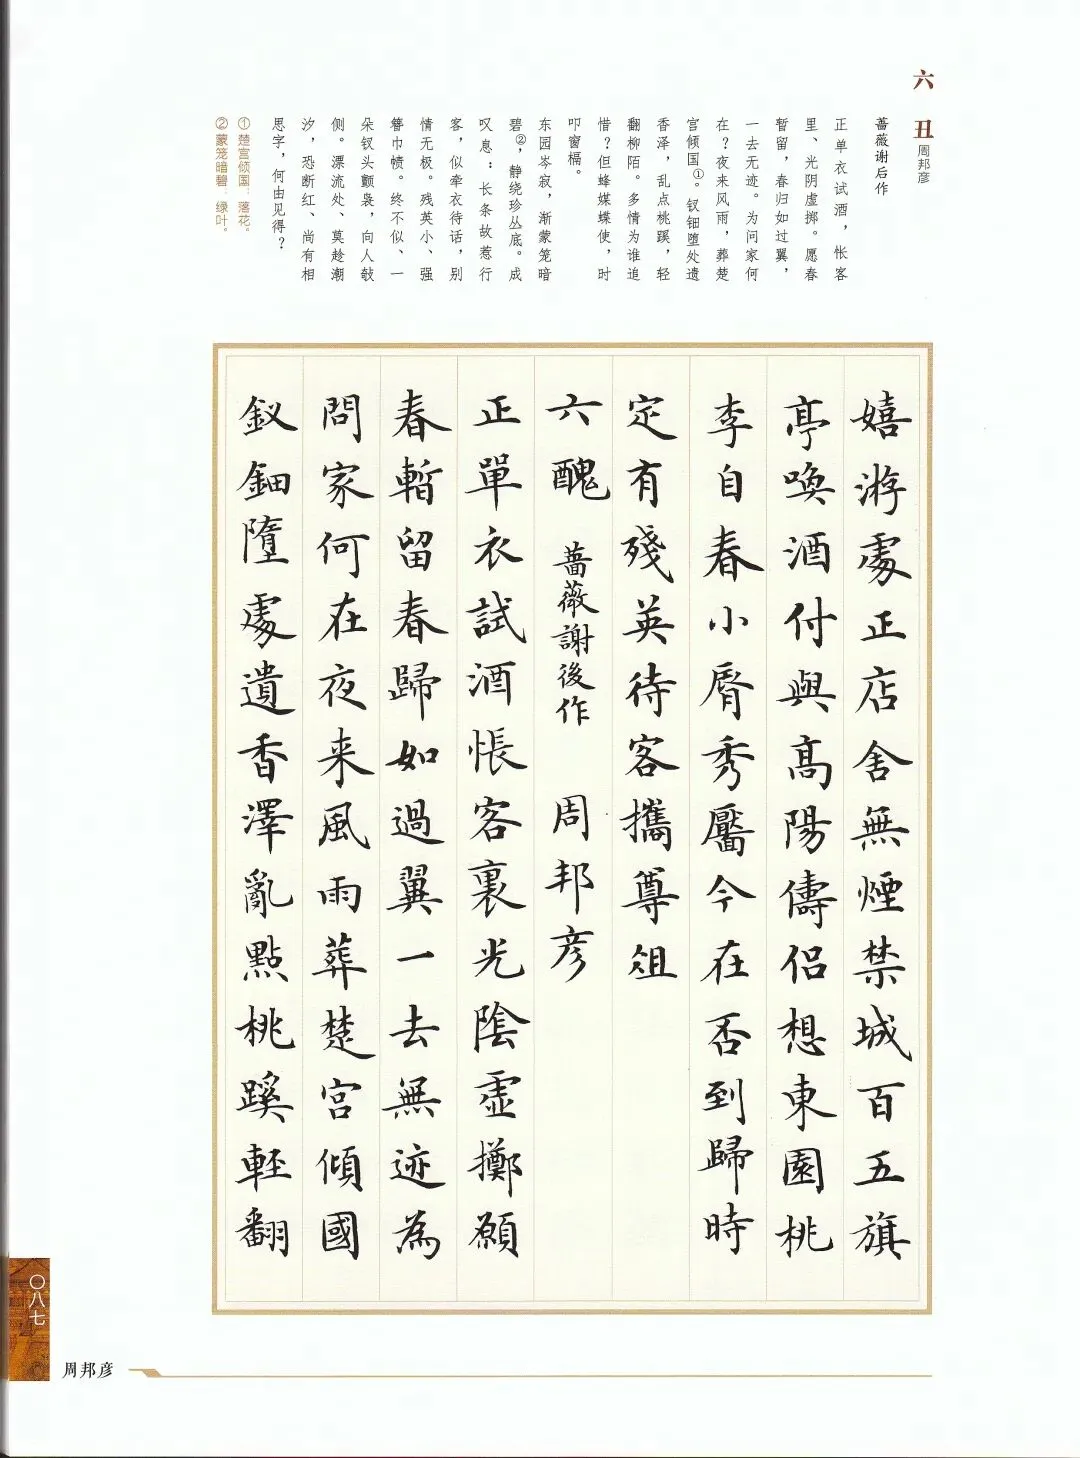 六丑
周邦彦
蔷薇谢后作
正单衣试酒，怅客
里、光阴虚掷。愿春
暂留，春归如过翼，
一去无迹。为问家何
在？夜来风雨，葬楚
宫倾国①。钗钿堕处遗
香泽，乱点桃蹊，轻
翻柳陌。多情为谁追
惜？但蜂媒蝶使，时
叩窗槅。
东园岑寂，渐蒙笼暗
碧②，静绕珍丛底。成
叹息：长条故惹行
客，似牵衣待话，别
情无极。残英小、强
簪巾帻。终不似、一
朵钗头颤袅，向人敧
侧。漂流处、莫趁潮
汐，恐断红、尚有相
思字，何由见得？
①楚宫倾国：落花。
②蒙笼暗碧：绿叶。
嬉游處正店舍無煙禁城百五旗
亭喚酒付與高陽儔侶想東園桃
李自春小脣秀靨今在否到歸時
定有殘英待客攜尊俎
六醜 蔷薇謝後作 周邦彦
正單衣試酒悵客裏光陰虛擲願
春暫留春歸如過翼一去無迹為
問家何在夜来風雨葬楚宮傾國
釵鈿墮處遺香澤亂點桃蹊輕翻
〇八七
周邦彦